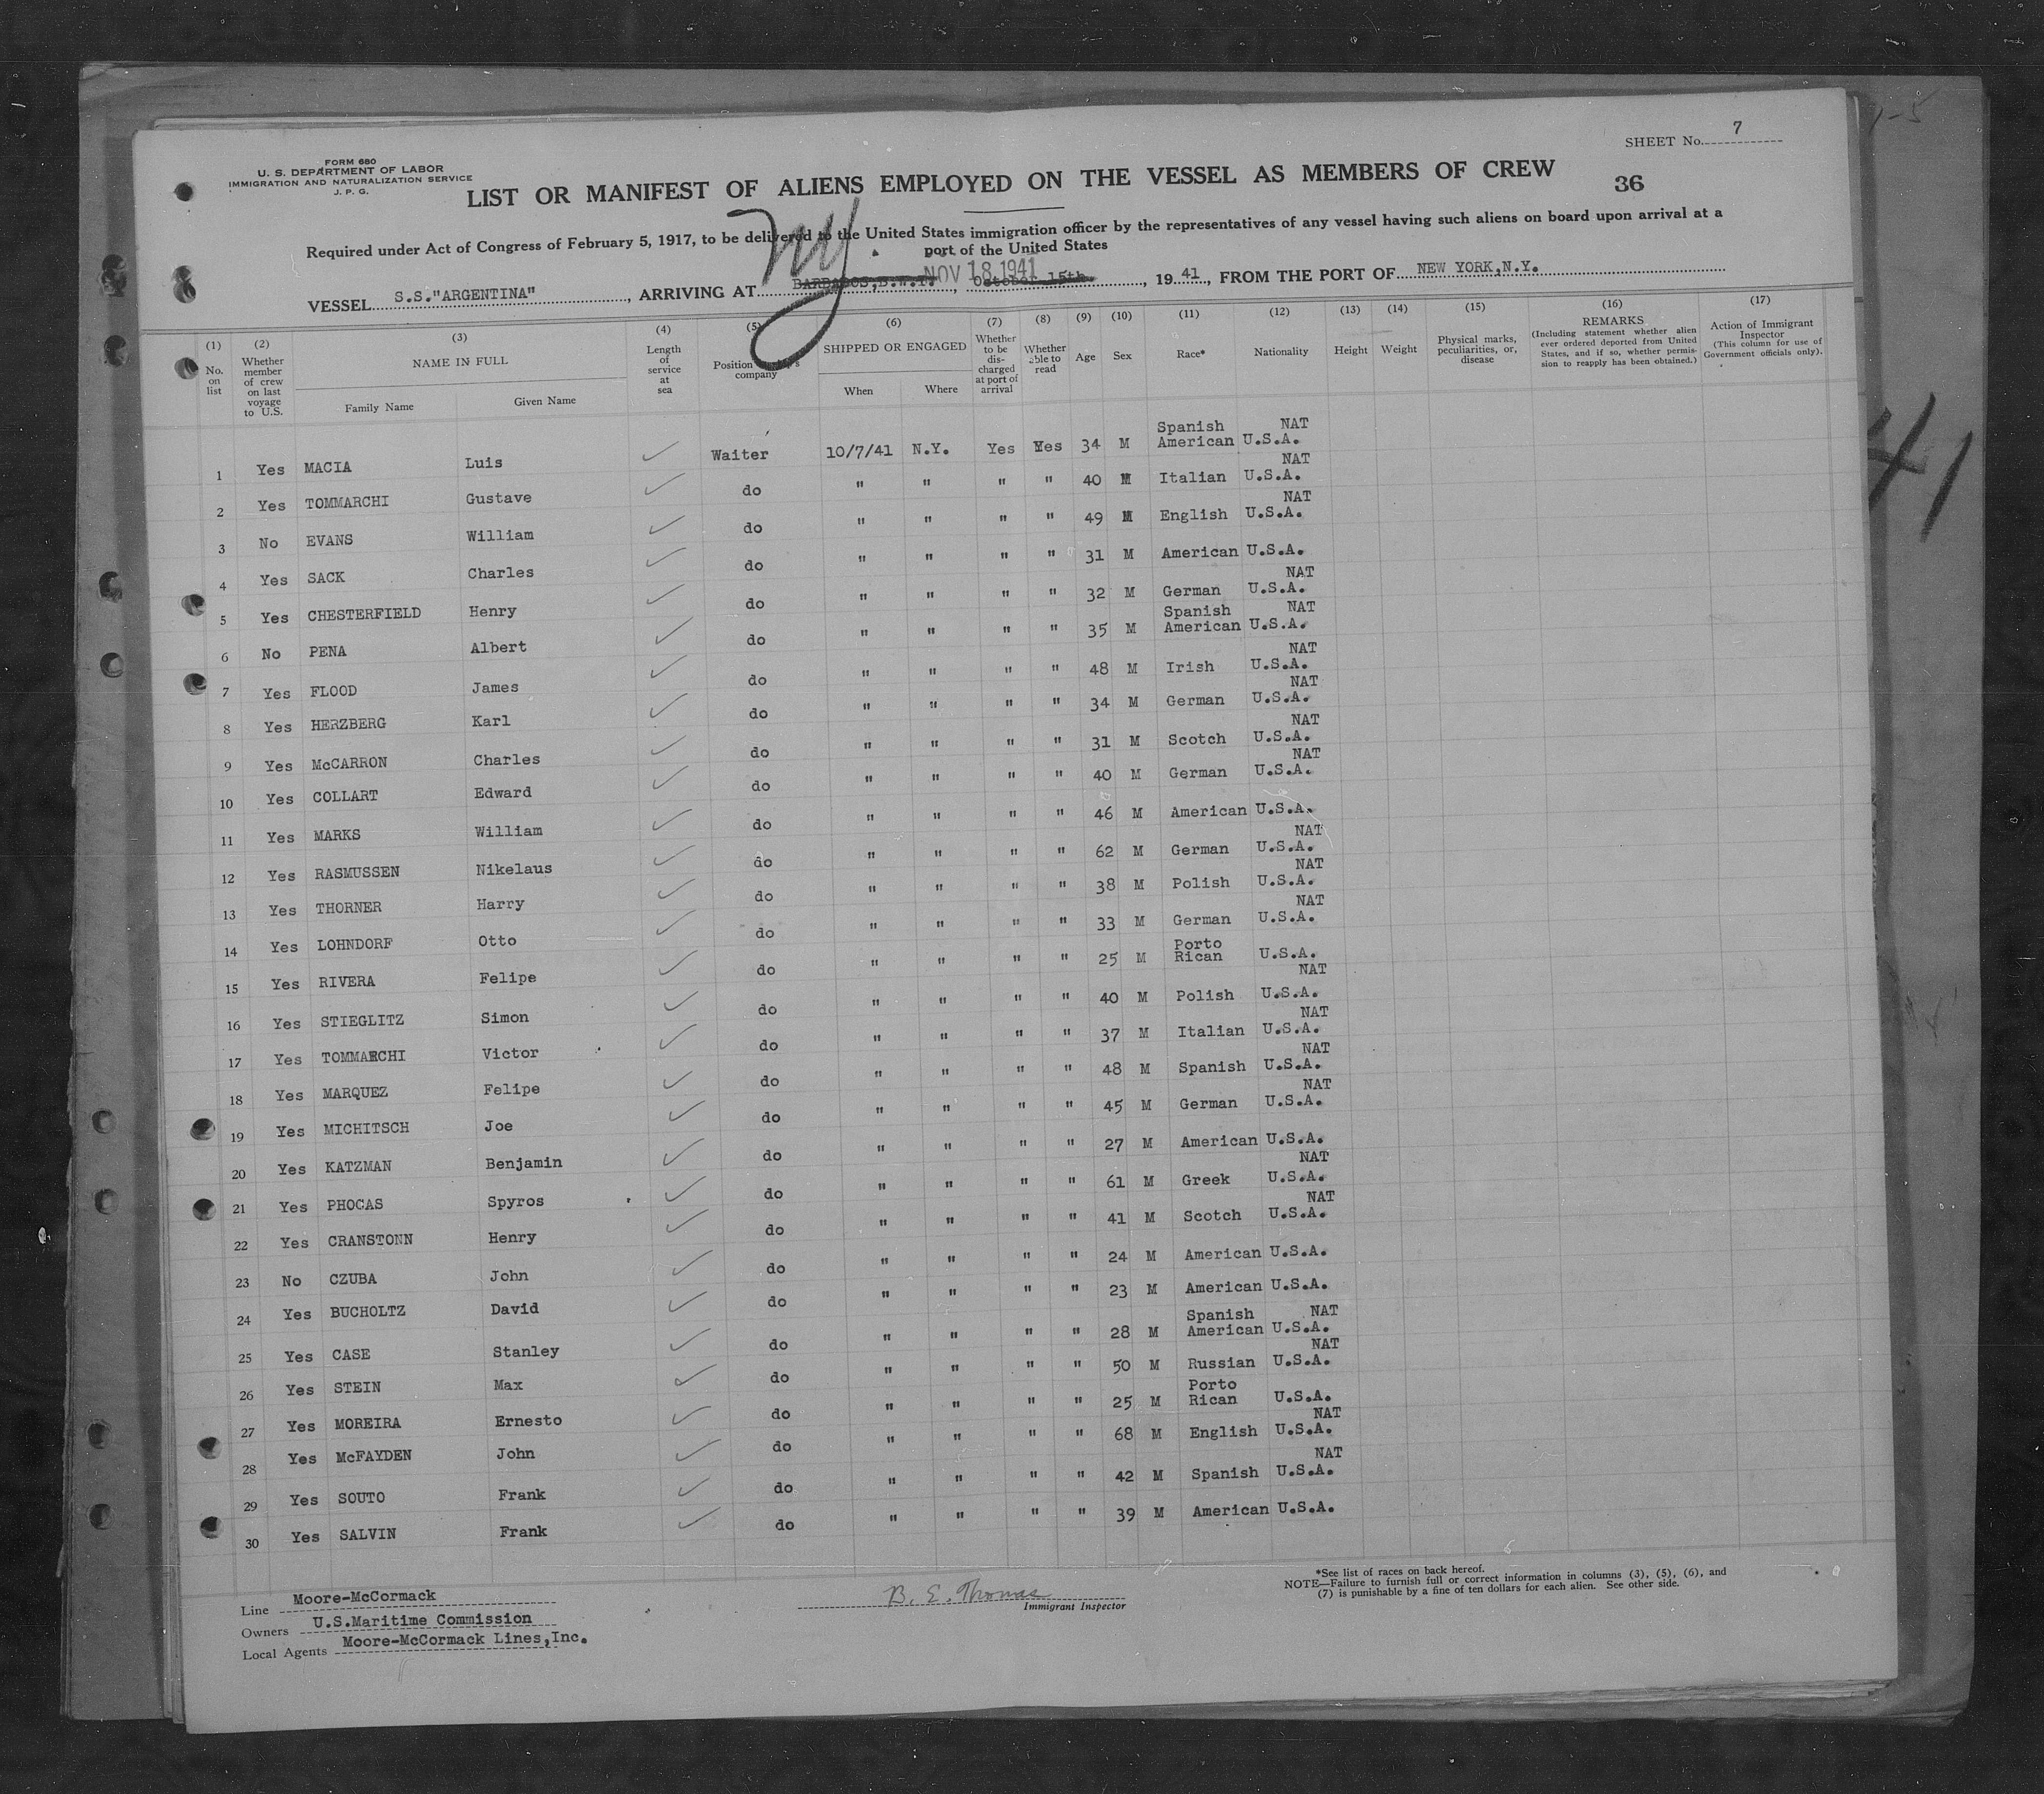 SHEET No. 7
FORM 680
U. S. DEPARTMENT OF LABOR
IMMIGRATION AND NATURALIZATION SERVICE
J. P. G.
LIST OR MANIFEST OF ALIENS EMPLOYED ON THE VESSEL AS MEMBERS OF CREW
36
Required under Act of Congress of February 5, 1917, to be delivered to the United States immigration officer by the representatives of any vessel having such aliens on board upon arrival at a
port of the United States
NY.
NOV 18 1941
VESSEL S.S."ARGENTINA", ARRIVING AT BARBADOS,B.W.I., October 15th, 19 41, FROM THE PORT OF NEW YORK,N.Y.
(1) No. on list
(2) Whether member of crew on last voyage to U.S.
(3) NAME IN FULL Family Name Given Name
(4) Length of service at sea
(5) Position company
(6) SHIPPED OR ENGAGED When Where
(7) Whether to be discharged at port of arrival
(8) Whether able to read
(9) Age
(10) Sex
(11) Race*
(12) Nationality
(13) Height
(14) Weight
(15) Physical marks, peculiarities, or, disease
(16) REMARKS (Including statement whether alien ever ordered deported from United States, and if so, whether permission to reapply has been obtained.)
(17) Action of Immigrant Inspector (This column for use of Government officials only).
1 Yes MACIA Luis Waiter 10/7/41 N.Y. Yes Yes 34 M Spanish American NAT U.S.A.
2 Yes TOMMARCHI Gustave do " " " " 40 M Italian NAT U.S.A.
3 No EVANS William do " " " " 49 M English NAT U.S.A.
4 Yes SACK Charles do " " " " 31 M American U.S.A.
5 Yes CHESTERFIELD Henry do " " " " 32 M German NAT U.S.A.
6 No PENA Albert do " " " " 35 M Spanish American NAT U.S.A.
7 Yes FLOOD James do " " " " 48 M Irish NAT U.S.A.
8 Yes HERZBERG Karl do " " " " 34 M German NAT U.S.A.
9 Yes McCARRON Charles do " " " " 31 M Scotch NAT U.S.A.
10 Yes COLLART Edward do " " " " 40 M German NAT U.S.A.
11 Yes MARKS William do " " " " 46 M American U.S.A.
12 Yes RASMUSSEN Nikelaus do " " " " 62 M German NAT U.S.A.
13 Yes THORNER Harry do " " " " 38 M Polish NAT U.S.A.
14 Yes LOHNDORF Otto do " " " " 33 M German NAT U.S.A.
15 Yes RIVERA Felipe do " " " " 25 M Porto Rican U.S.A.
16 Yes STIEGLITZ Simon do " " " " 40 M Polish NAT U.S.A.
17 Yes TOMMARCHI Victor do " " " " 37 M Italian NAT U.S.A.
18 Yes MARQUEZ Felipe do " " " " 48 M Spanish NAT U.S.A.
19 Yes MICHITSCH Joe do " " " " 45 M German NAT U.S.A.
20 Yes KATZMAN Benjamin do " " " " 27 M American U.S.A.
21 Yes PHOCAS Spyros do " " " " 61 M Greek NAT U.S.A.
22 Yes CRANSTONN Henry do " " " " 41 M Scotch NAT U.S.A.
23 No CZUBA John do " " " " 24 M American U.S.A.
24 Yes BUCHOLTZ David do " " " " 23 M American U.S.A.
25 Yes CASE Stanley do " " " " 28 M Spanish American NAT U.S.A.
26 Yes STEIN Max do " " " " 50 M Russian NAT U.S.A.
27 Yes MOREIRA Ernesto do " " " " 25 M Porto Rican U.S.A.
28 Yes McFAYDEN John do " " " " 68 M English NAT U.S.A.
29 Yes SOUTO Frank do " " " " 42 M Spanish NAT U.S.A.
30 Yes SALVIN Frank do " " " " 39 M American U.S.A.
Line Moore-McCormack
Owners U.S.Maritime Commission
Local Agents Moore-McCormack Lines,Inc.
B. E. Thomas
Immigrant Inspector
*See list of races on back hereof.
NOTE—Failure to furnish full or correct information in columns (3), (5), (6), and
(7) is punishable by a fine of ten dollars for each alien. See other side.
41
1-5